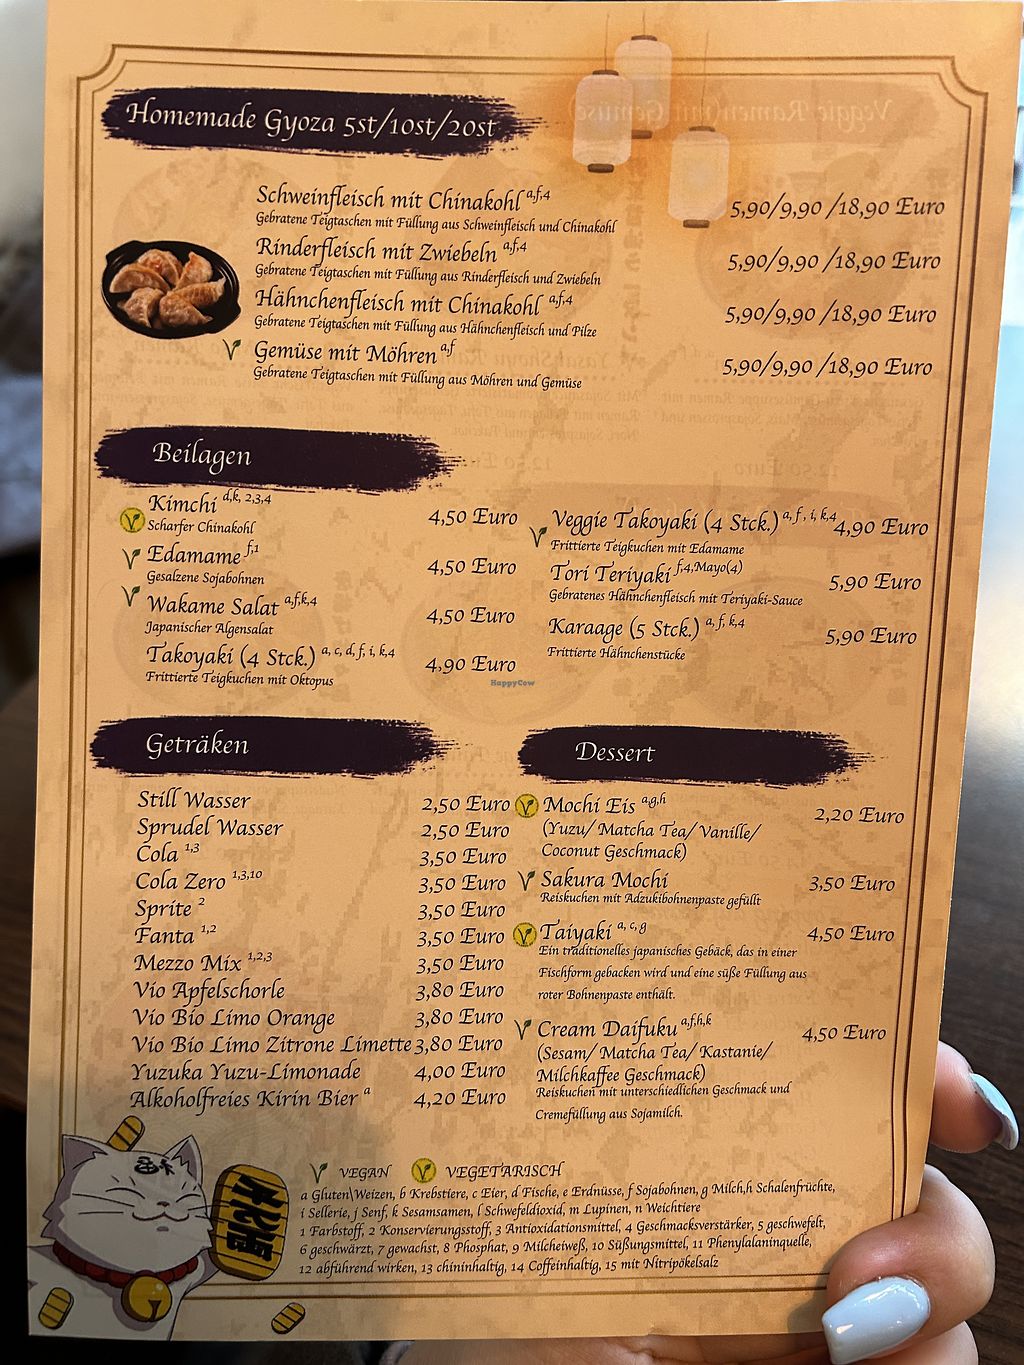 Homemade Gyoza 5st/10st/20st
Schweinfleisch mit Chinakohl a,f,4 5,90/9,90 /18,90 Euro
Gebratene Teigtaschen mit Füllung aus Schweinfleisch und Chinakohl
Rinderfleisch mit Zwiebeln a,f,4 5,90/9,90 /18,90 Euro
Gebratene Teigtaschen mit Füllung aus Rinderfleisch und Zwiebeln
Hähnchenfleisch mit Chinakohl a,f,4 5,90/9,90 /18,90 Euro
Gebratene Teigtaschen mit Füllung aus Hähnchenfleisch und Pilze
Gemüse mit Möhren a,f 5,90/9,90 /18,90 Euro
Gebratene Teigtaschen mit Füllung aus Möhren und Gemüse
Beilagen
Kimchi d,k, 2,3,4 4,50 Euro
Scharfer Chinakohl
Edamame f,1 4,50 Euro
Gesalzene Sojabohnen
Wakame Salat a,f,k,4 4,50 Euro
Japanischer Algensalat
Takoyaki (4 Stck.) a, c, d, f, i, k,4 4,90 Euro
Frittierte Teigkuchen mit Oktopus
Veggie Takoyaki (4 Stck.) a, f , i, k,4 4,90 Euro
Frittierte Teigkuchen mit Edamame
Tori Teriyaki f,4,Mayo(4) 5,90 Euro
Gebratenes Hähnchenfleisch mit Teriyaki-Sauce
Karaage (5 Stck.) a, f, k,4 5,90 Euro
Frittierte Hähnchenstücke
HappyCow
Geträken
Still Wasser 2,50 Euro
Sprudel Wasser 2,50 Euro
Cola 1,3 3,50 Euro
Cola Zero 1,3,10 3,50 Euro
Sprite 2 3,50 Euro
Fanta 1,2 3,50 Euro
Mezzo Mix 1,2,3 3,50 Euro
Vio Apfelschorle 3,80 Euro
Vio Bio Limo Orange 3,80 Euro
Vio Bio Limo Zitrone Limette 3,80 Euro
Yuzuka Yuzu-Limonade 4,00 Euro
Alkoholfreies Kirin Bier a 4,20 Euro
Dessert
Mochi Eis a,g,h 2,20 Euro
(Yuzu/ Matcha Tea/ Vanille/
Coconut Geschmack)
Sakura Mochi 3,50 Euro
Reiskuchen mit Adzukibohnenpaste gefüllt
Taiyaki a, c, g 4,50 Euro
Ein traditionelles japanisches Gebäck, das in einer
Fischform gebacken wird und eine süße Füllung aus
roter Bohnenpaste enthält.
Cream Daifuku a,f,h,k 4,50 Euro
(Sesam/ Matcha Tea/ Kastanie/
Milchkaffee Geschmack)
Reiskuchen mit unterschiedlichen Geschmack und
Cremefüllung aus Sojamilch.
VEGAN VEGETARISCH
a Gluten\Weizen, b Krebstiere, c Eier, d Fische, e Erdnüsse, f Sojabohnen, g Milch,h Schalenfrüchte,
i Sellerie, j Senf, k Sesamsamen, l Schwefeldioxid, m Lupinen, n Weichtiere
1 Farbstoff, 2 Konservierungsstoff, 3 Antioxidationsmittel, 4 Geschmacksverstärker, 5 geschwefelt,
6 geschwärzt, 7 gewachst, 8 Phosphat, 9 Milcheiweß, 10 Süßungsmittel, 11 Phenylalaninquelle,
12 abführend wirken, 13 chininhaltig, 14 Coffeinhaltig, 15 mit Nitripökelsalz